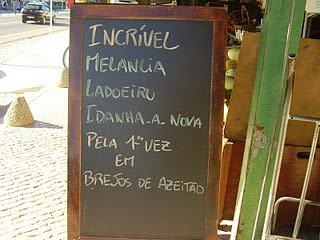 INCRÍVEL
MELANCIA
LADOEIRO
IDANHA-A-NOVA
PELA 1ª VEZ
EM
BREJOS DE AZEITÃO